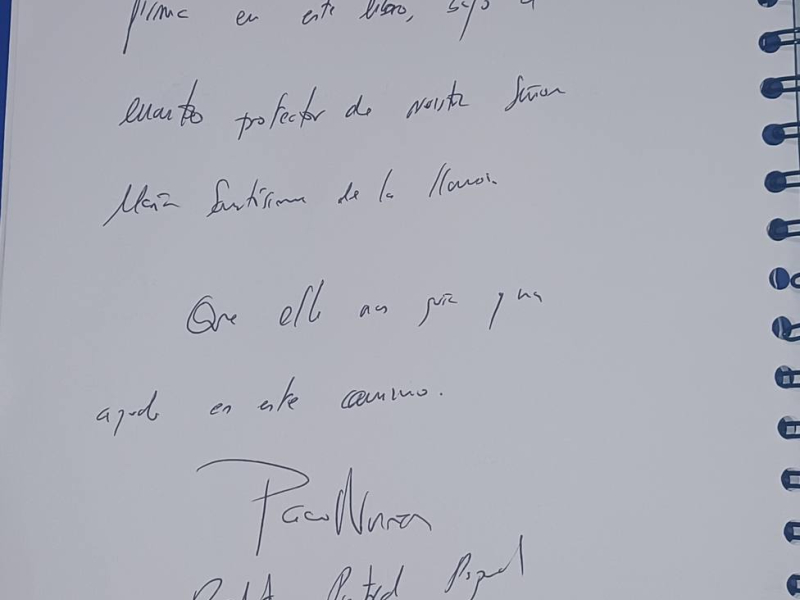 firma en este libro, bajo el
manto protector de nuestra Señora
María Santísima de la
Que ella nos guíe y nos
ayude en este camino.
Paco Núñez